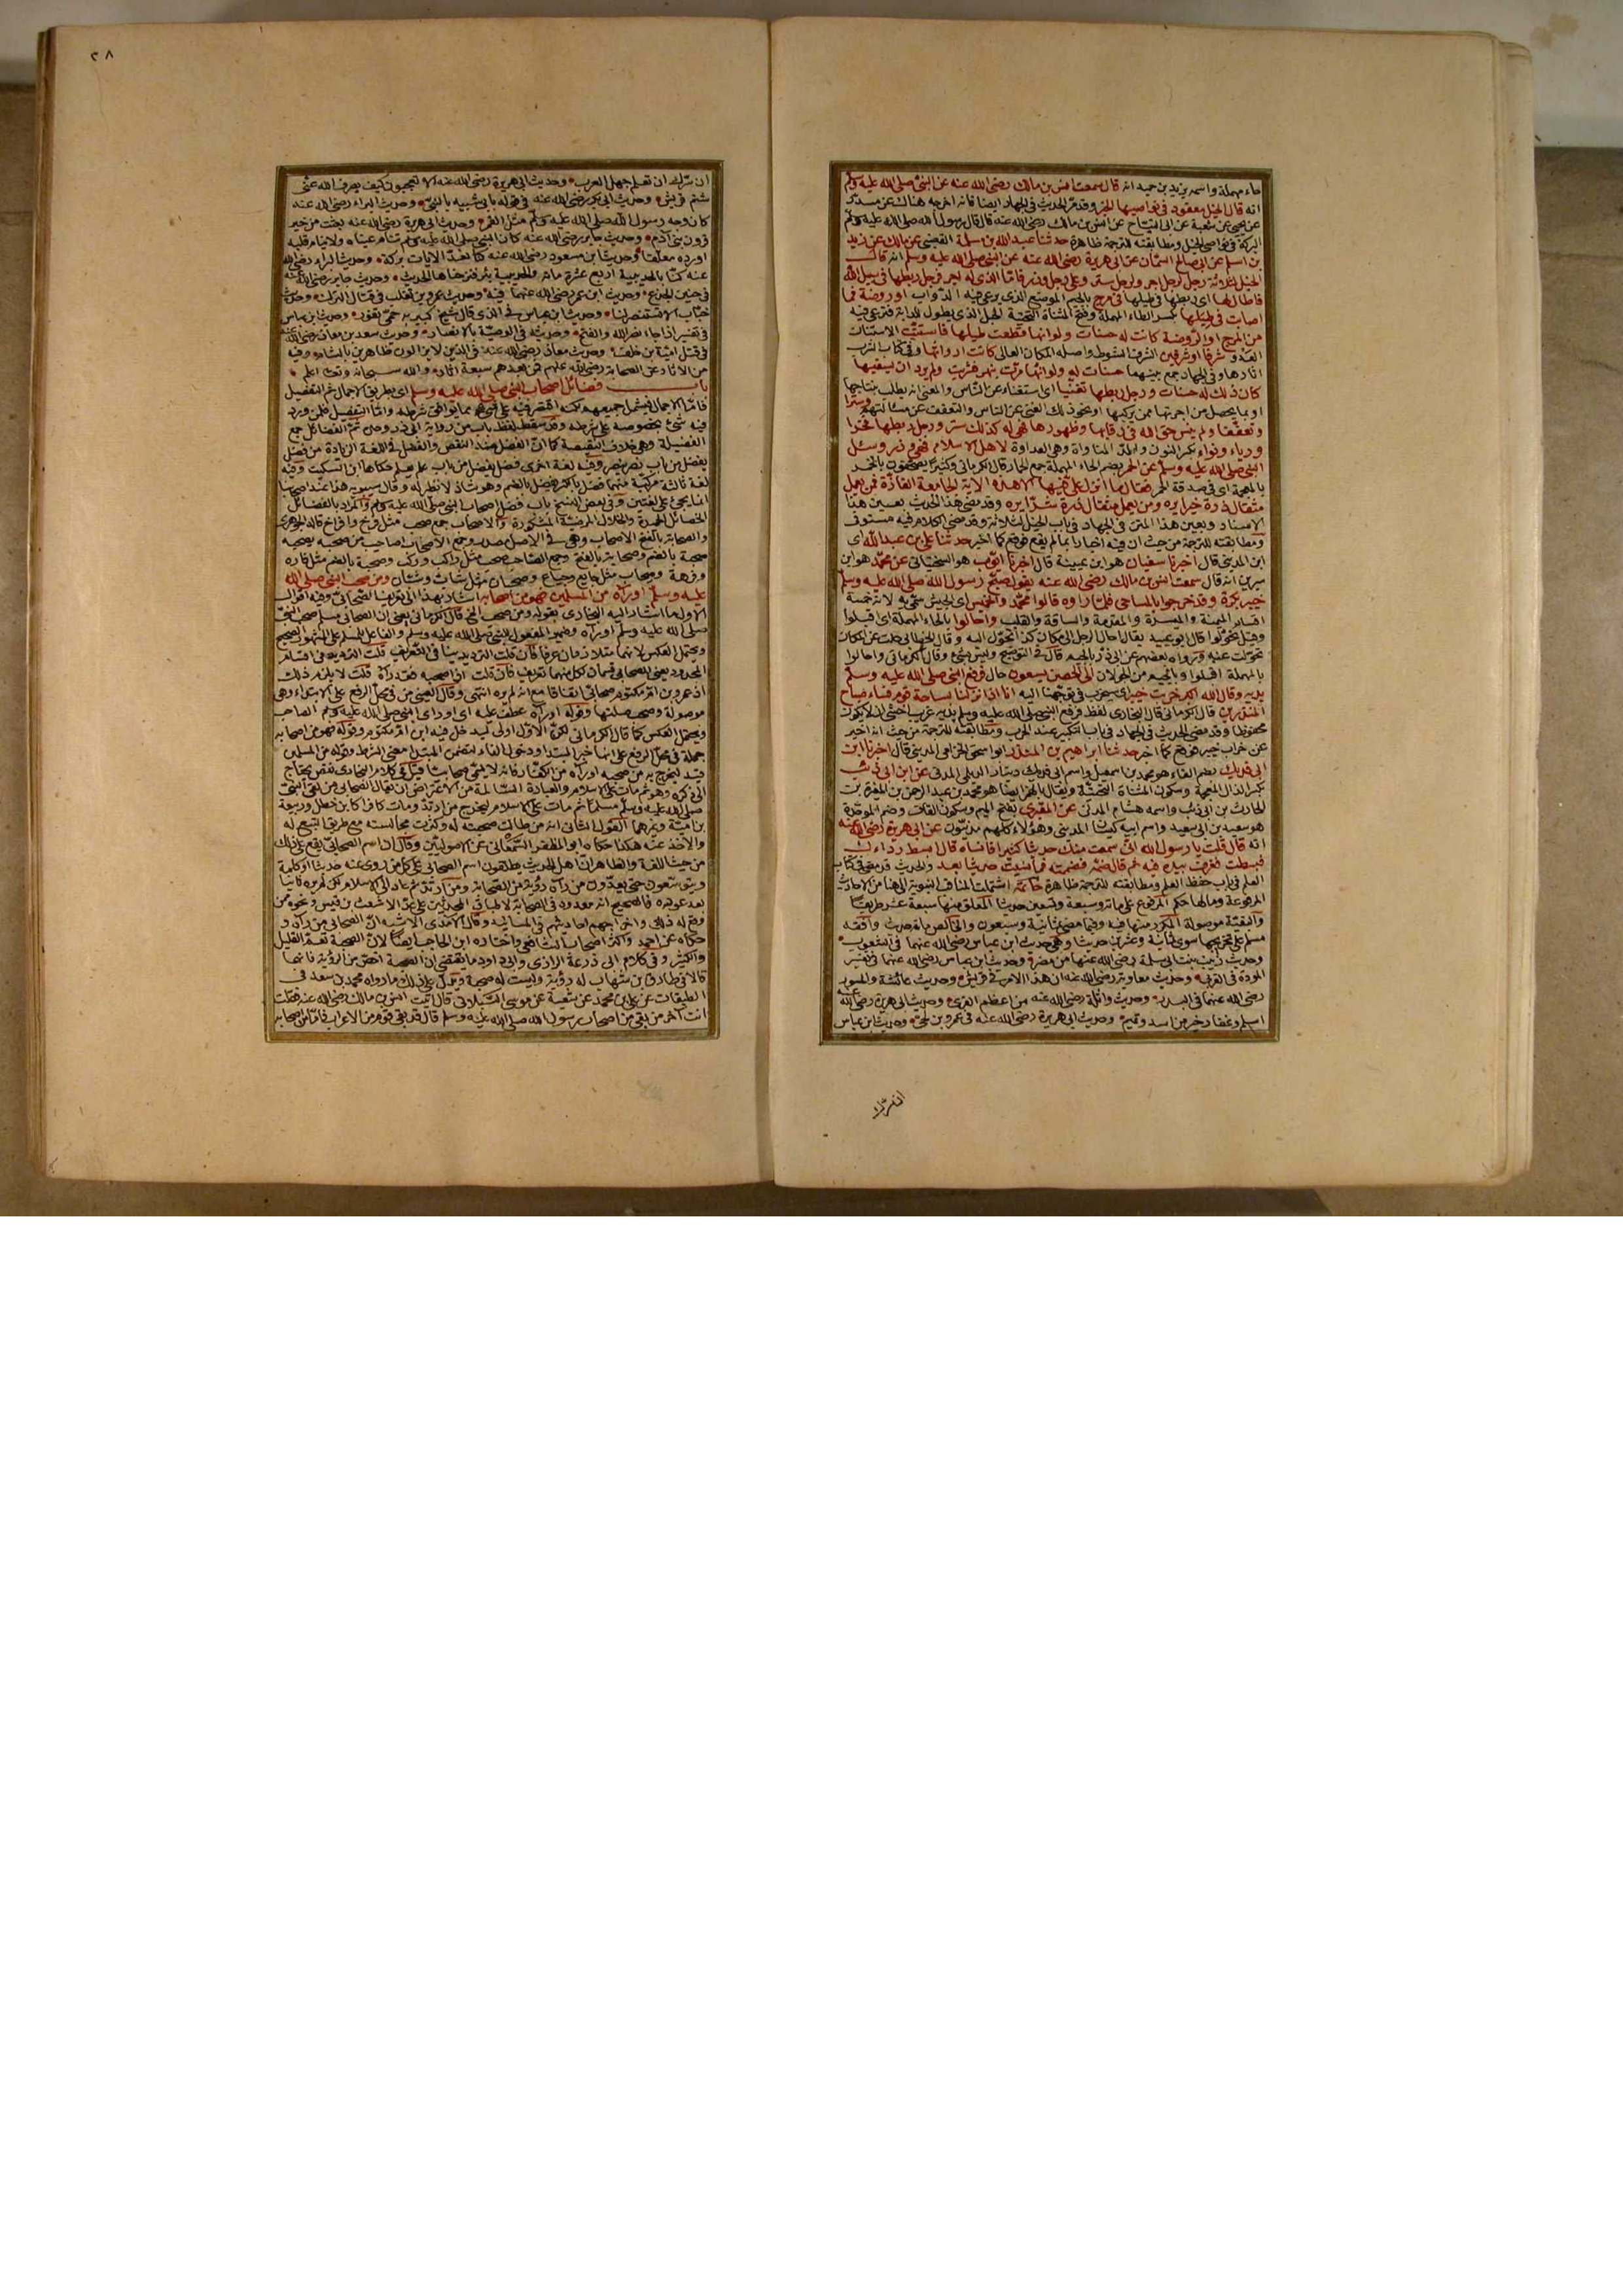 حاء مهملة واسمه يزيد بن حميد انه قال سمعت انس بن مالك رضى الله عنه عن النبى صلى الله عليه وسلم
انه قال الخيل معقود فى نواصيها الخير وقد مر الحديث فى الجهاد ايضا فانه اخرجه هناك عن مسدد
عن يحيى عن شعبة عن ابى التياح عن انس بن مالك رضى الله عنه قال قال رسول الله صلى الله عليه وسلم
البركة فى نواصى الخيل ومطابقته للترجمة ظاهرة حدثنا عبد الله بن مسلمة القعنبى عن مالك عن زيد
بن اسلم عن ابى صالح السمان عن ابى هريرة رضى الله عنه عن النبى صلى الله عليه وسلم انه قال
الخيل لثلاثة رجل لرجل اجر ولرجل ستر وعلى رجل وزر فاما الذى له اجر فرجل ربطها فى سبيل الله
فاطال لها اى ربطها فى طيلها فى مرج بالجيم الموضع الذى يرعى فيه الدواب او روضة فما
اصابت فى طيلها بكسر الطاء المهملة وفتح المثناة التحتية الحبل الذى يطول للدابة فترعى فيه
من المرج او الروضة كانت له حسنات ولو انها قطعت طيلها فاستنت الاستنان
العدو شرفا او شرفين الشرف الشوط واصله المكان العالى كانت ارواثها وفى كتاب الشرب
اثارها وفى الجهاد جمع بينهما حسنات له ولو انها مرت بنهر فشربت ولم يرد ان يسقيها
كان ذلك له حسنات ورجل ربطها تغنيا اى استغناء عن الناس والمعنى انه يطلب بنتاجها
او بما يحصل من اجرتها ممن يركبها او نحو ذلك الغنى عن الناس والتعفف عن مسألتهم وسترا
وتعففا ولم ينس حق الله فى رقابها وظهورها فهى له كذلك ستر ورجل ربطها فخرا
ورياء ونواء بكسر النون والمد المناواة وهى العداوة لاهل الاسلام فهى وزر وسئل
النبى صلى الله عليه وسلم عن الحمر بضم الحاء المهملة جمع الحمار قال الكرمانى وكثير يصحفون بالخمر
بالمعجمة اى فى صدقة الحمر فقال ما انزل على فيها الا هذه الاية الجامعة الفاذة فمن يعمل
مثقال ذرة خيرا يره ومن يعمل مثقال ذرة شرا يره وقد مضى هذا الحديث بعين هذا
الاسناد وبعين هذا المتن فى الجهاد فى باب الخيل لثلاثة وقد مضى الكلام فيه مستوفى
ومطابقته للترجمة من حيث ان فيه اخبارا بما لم يقع فوقع كما اخبر حدثنا على بن عبد الله اى
ابن المدينى قال اخبرنا سفيان هو ابن عيينة قال اخبرنا ايوب هو السختيانى عن محمد هو ابن
سيرين انه قال سمعت انس بن مالك رضى الله عنه يقول صبح رسول الله صلى الله عليه وسلم
خيبر بكرة وقد خرجوا بالمساحى فلما راوه قالوا محمد والخميس اى الجيش سمى به لانه خمسة
اقسام الميمنة والميسرة والمقدمة والساقة والقلب واحالوا بالحاء المهملة اى اقبلوا
وقيل تحولوا قال ابو عبيد يقال احال الرجل الى مكان كذا تحول اليه وقال الخطابى حلت عن المكان
تحولت عنه ورواه بعضهم عن ابى ذر بالجيم قال فى التوضيح وليس بشىء وقال الكرمانى واحالوا
بالمهملة اقبلوا وبالجيم من الجولان الى الحصن يسعون حال فرفع النبى صلى الله عليه وسلم
يديه وقال الله اكبر خربت خيبر اى ستخرب فى توجهنا اليه انا اذا نزلنا بساحة قوم فساء صباح
المنذرين قال الكرمانى قال البخارى لفظ فرفع النبى صلى الله عليه وسلم يديه غريب اخشى ان لا يكون
محفوظا وقد مضى الحديث فى الجهاد فى باب التكبير عند الحرب ومطابقته للترجمة من حيث انه اخبر
عن خراب خيبر فوقع كما اخبر حدثنا ابراهيم بن المنذر ابو اسحق الحزامى المدينى قال اخبرنا ابن
ابى فديك بضم الفاء هو محمد بن اسمعيل واسم ابى فديك دينار الديلى المدنى عن ابن ابى ذئب
بكسر الذال المعجمة وسكون المثناة التحتية ويقال بالهمز ايضا هو محمد بن عبد الرحمن بن المغيرة بن
الحارث بن ابى ذئب واسمه هشام المدنى عن المقبرى بفتح الميم وسكون القاف وضم الموحدة
هو سعيد بن ابى سعيد واسم ابيه كيسان المدينى وهؤلاء كلهم مدنيون عن ابى هريرة رضى الله عنه
انه قال قلت يا رسول الله انى سمعت منك حديثا كثيرا فانساه قال ابسط رداءك
فبسطت فغرف بيده فيه ثم قال ضمه فضممته فما نسيت حديثا بعد والحديث قد مضى فى كتاب
العلم فى باب حفظ العلم ومطابقته للترجمة ظاهرة خاتمة اشتملت المناقب النبوية الى هنا من الاحاديث
المرفوعة وما لها حكم المرفوع على مائة وسبعة وتسعين حديثا المعلق منها سبعة عشر طريقا
والبقية موصولة المكرر منها فيه وفيما مضى ثمانية وسبعون والخالص مائة حديث وافقه
مسلم على تخريجها سوى ثمانية وعشرين حديثا وهى حديث ابن عباس رضى الله عنهما فى الشعوب
وحديث زينب بنت ابى سلمة رضى الله عنها من مضر وحديث ابن عباس رضى الله عنهما فى تفسير
المودة فى القربى وحديث معاوية رضى الله عنه ان هذا الامر فى قريش وحديث عائشة والمسور
رضى الله عنهما فى النذر وحديث واثلة رضى الله عنه من اعظم الفرى وحديث ابى هريرة رضى الله عنه
اسلم وغفار خير من اسد وتميم وحديث ابى هريرة رضى الله عنه فى عمرو بن لحى وحديث ابن عباس
ان سرك
٢٨
ان سرك ان تعلم جهل العرب وحديث ابى هريرة رضى الله عنه الا تعجبون كيف يصرف الله عنى
شتم قريش وحديث ابى بكر رضى الله عنه فى قوله بابى شبيه بالنبى وحديث البراء رضى الله عنه
كان وجه رسول الله صلى الله عليه وسلم مثل القمر وحديث ابى هريرة رضى الله عنه بعثت من خير
قرون بنى آدم وحديث جابر رضى الله عنه كان النبى صلى الله عليه وسلم تنام عيناه ولا ينام قلبه
اورده معلقا وحديث ابن مسعود رضى الله عنه كنا نعد الايات بركة وحديث البراء رضى الله
عنه كنا بالحديبية اربع عشرة مائة والحديبية بئر فنزحناها الحديث وحديث جابر رضى الله عنه
فى حنين الجذع وحديث ابن عمر رضى الله عنهما فيه وحديث عمرو بن تغلب فى قتال الترك وحديث
خباب الا تستنصر لنا وحديث ابن عباس فى الذى قال شيخ كبير به حمى تفور وحديث ابن عباس
فى تفسير اذا جاء نصر الله والفتح وحديثه فى الوصية بالانصار وحديث سعد بن معاذ رضى الله عنه
فى قتل امية بن خلف وحديث معاذ رضى الله عنه فى الذين لا يزالون ظاهرين بالشام وفيه
من الاثار عن الصحابة رضى الله عنهم فمن بعدهم سبعة اثار والله سبحانه وتعالى اعلم
باب فضائل اصحاب النبى صلى الله عليه وسلم اى بطريق الاجمال ثم التفصيل
فاما الاجمال فيشمل جميعهم لكنه اقتصر فيه على شىء مما يوافق شرطه واما التفصيل فلمن ورد
فيه شىء بخصوصه على شرطه وقد سقط لفظ باب من رواية ابى ذر وحده ثم الفضائل جمع
الفضيلة وهى خلاف النقيصة كما ان الفضل ضد النقص والفضل فى اللغة الزيادة من فضل
يفضل من باب نصر ينصر وفيه لغة اخرى فضل يفضل من باب علم يعلم حكاها ابن السكيت وفيه
لغة ثالثة مركبة منهما فضل بالكسر يفضل بالضم وهو شاذ لا نظير له وقال سيبويه هذا عند اصحابنا
انما يجىء على لغتين وفى بعض النسخ باب فضل اصحاب النبى صلى الله عليه وسلم والمراد بالفضائل
الخصائل الحميدة والخلال المرضية المشكورة والاصحاب جمع صحب مثل فرخ وافراخ قاله الجوهرى
والصحابة بالفتح الاصحاب وهى فى الاصل مصدر وجمع الاصحاب اصاحيب من صحبه يصحبه
صحبة بالضم وصحابة بالفتح وجمع الصاحب صحب مثل راكب وركب وصحبة بالضم مثل فاره
وفرهة وصحاب مثل جايع وجياع وصحبان مثل شاب وشبان ومن صحب النبى صلى الله
عليه وسلم او رآه من المسلمين فهو من اصحابه اشار بهذا الى تعريف الصحابى وفيه اقوال
الاول ما اشار اليه البخارى بقوله ومن صحب الخ قال الكرمانى يعنى ان الصحابى مسلم صحب النبى
صلى الله عليه وسلم او رآه وضمير المفعول للنبى صلى الله عليه وسلم والفاعل للمسلم على المشهور الصحيح
ويحتمل العكس لانهما متلازمان عرفا فان قلت الترديد ينافى التعريف قلت الترديد فى اقسام
المحدود يعنى الصحابى قسمان لكل منهما تعريف فان قلت اذا صحبه فقد رآه قلت لا يلزم ذلك
اذ عمرو بن ام مكتوم صحابى اتفاقا مع انه لم يره انتهى وقال العينى من فى محل الرفع على الابتداء وهى
موصولة وصحب صلتها وقوله او رآه عطف عليه اى او راى النبى صلى الله عليه وسلم الصاحب
ويحتمل العكس كما قال الكرمانى لكن الاول اولى ليدخل فيه ابن ام مكتوم وقوله فهو من اصحابه
جملة فى محل الرفع على انها خبر المبتدا ودخول الفاء لتضمن المبتدا معنى الشرط وقوله من المسلمين
قيد ليخرج به من صحبه او رآه من الكفار فانه لا يسمى صحابيا قيل فى كلام البخارى نقص يحتاج
الى ذكره وهو ثم مات على الاسلام والعبارة السالمة من الاعتراض ان يقال الصحابى من لقى النبى
صلى الله عليه وسلم مسلما ثم مات على الاسلام ليخرج من ارتد ومات كافرا كابن خطل وربيعة
بن امية ونحوهما القول الثانى انه من طالت صحبته له وكثرت مجالسته مع طريق التتبع له
والاخذ عنه هكذا حكاه ابو المظفر السمعانى عن الاصوليين وقال ان اسم الصحابى يقع على ذلك
من حيث اللغة والظاهر ان اهل الحديث يطلقون اسم الصحابى على كل من روى عنه حديثا او كلمة
ويتوسعون حتى يعدون من رآه رؤية من الصحابة ومن ارتد ثم عاد الى الاسلام لكن لم يره ثانيا
بعد عوده فالصحيح انه معدود فى الصحابة لاطباق المحدثين على عد الاشعث بن قيس ونحوه ممن
وقع له ذلك واخراجهم احاديثهم فى المسانيد وقال الآمدى الاشبه ان الصحابى من رآه و
حكاه عن احمد واكثر اصحاب الشافعى واختاره ابن الحاجب ايضا لان الصحبة تعم القليل
والكثير وفى كلام ابى زرعة الرازى وابى داود ما يقتضى ان الصحبة اخص من الرؤية فانهما
قالا فى طارق بن شهاب له رؤية وليست له صحبة ويدل على ذلك ما رواه محمد بن سعد فى
الطبقات عن على بن محمد عن شعبة عن موسى السيلانى قال اتيت انس بن مالك رضى الله عنه فقلت
انت آخر من بقى من اصحاب رسول الله صلى الله عليه وسلم قال قد بقى قوم من الاعراب فاما من اصحابه